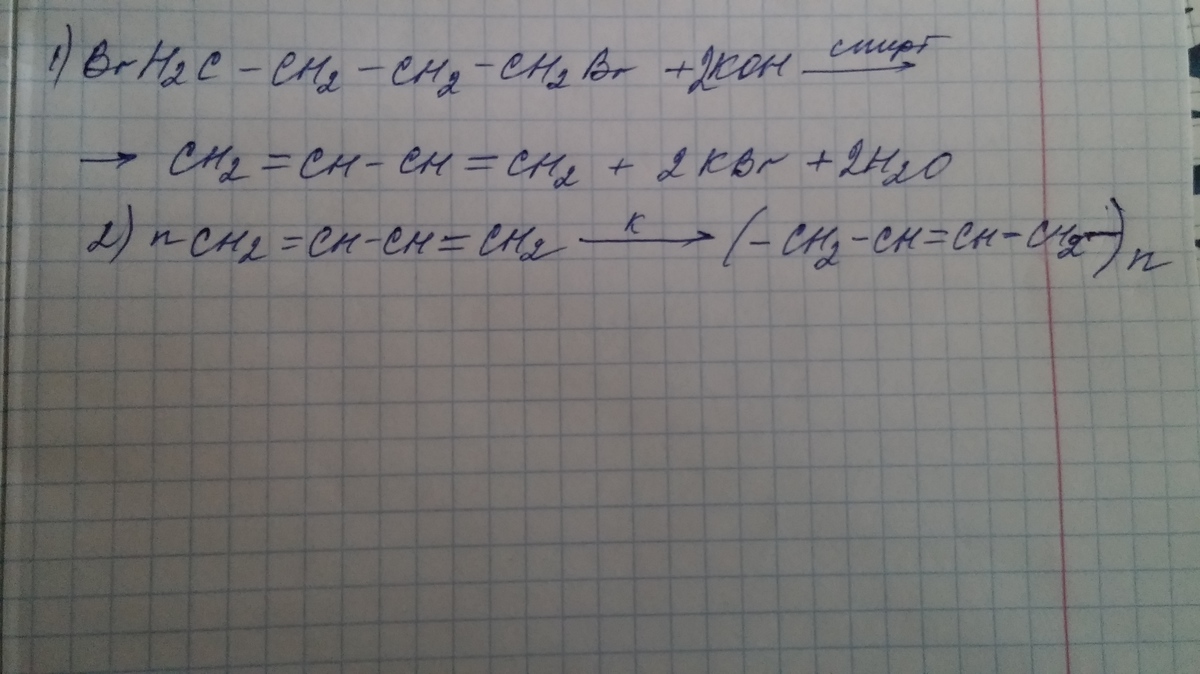 1) BrH₂C – CH₂ – CH₂ – CH₂Br + 2KOH спирт→
→ CH₂ = CH – CH = CH₂ + 2KBr + 2H₂O
2) n CH₂ = CH – CH = CH₂ K→ (– CH₂ – CH = CH – CH₂ –)n